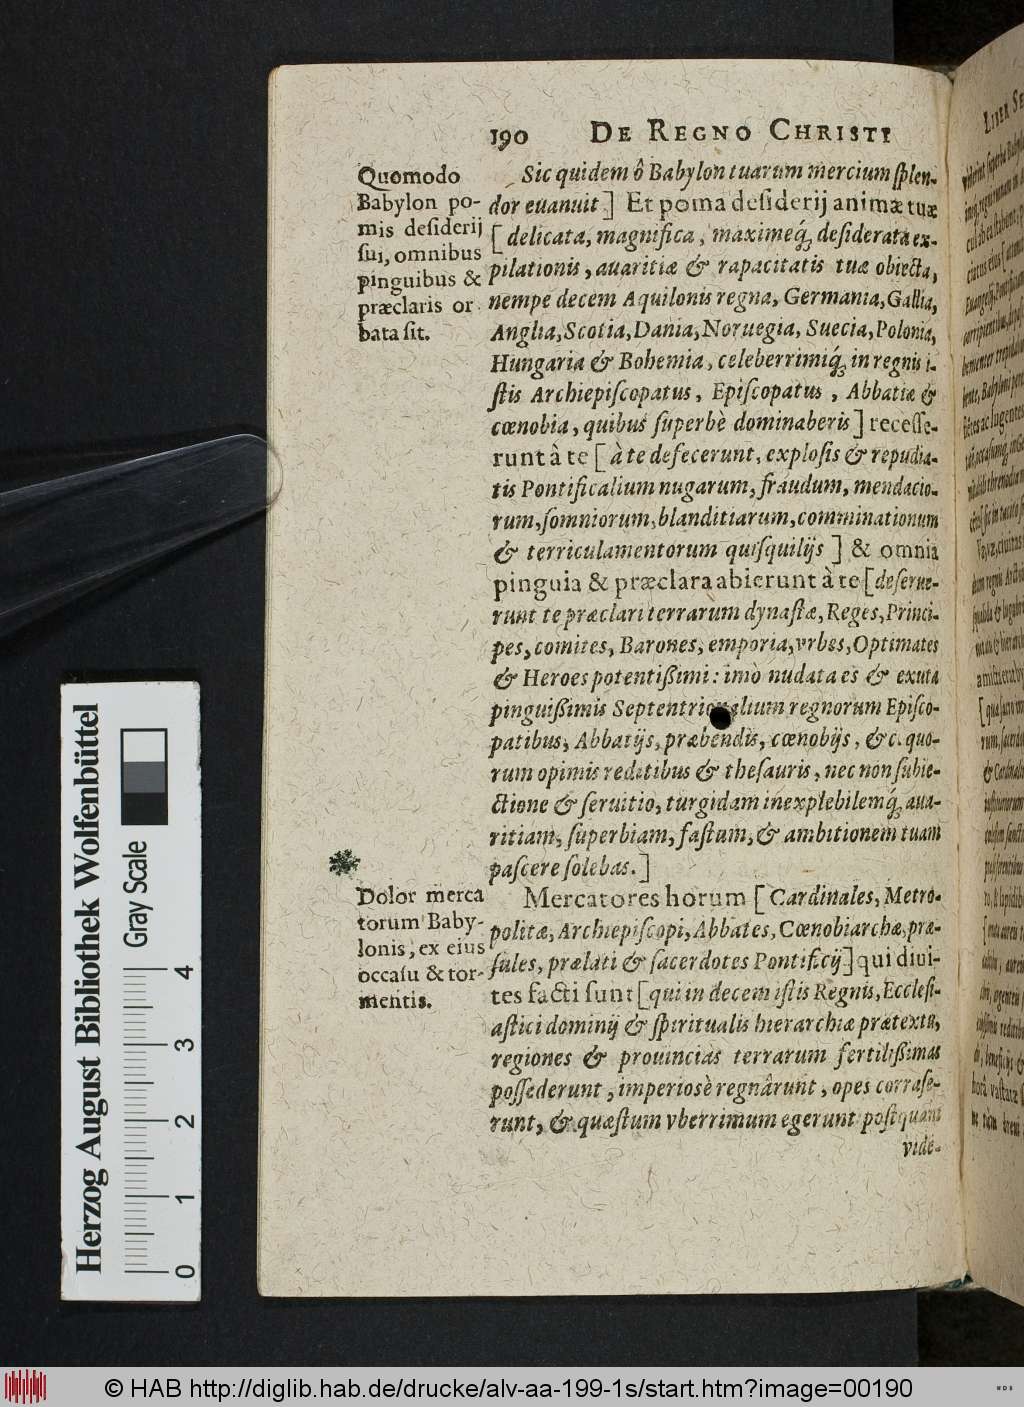 190 DE REGNO CHRISTI
Quomodo
Babylon po-
mis deſiderij
ſui, omnibus
pinguibus &
præclaris or
bata ſit.
Sic quidem ô Babylon tuarum mercium ſplen-
dor euanuit] Et poma deſiderij animæ tuæ
[delicata, magnifica, maximeq́; deſiderata ex-
pilationis, auaritiæ & rapacitatis tuæ obiecta,
nempe decem Aquilonis regna, Germania, Gallia,
Anglia, Scotia, Dania, Noruegia, Suecia, Polonia,
Hungaria & Bohemia, celeberrimiq́; in regnis i-
ſtis Archiepiſcopatus, Epiſcopatus, Abbatiæ &
cœnobia, quibus ſuperbè dominaberis] receſſe-
runt à te [à te defecerunt, exploſis & repudia-
tis Pontificalium nugarum, fraudum, mendacio-
rum, ſomniorum, blanditiarum, comminationum
& terriculamentorum quiſquilijs] & omnia
pinguia & præclara abierunt à te [deſerue-
runt te præclari terrarum dynaſtæ, Reges, Princi-
pes, comites, Barones, emporia, vrbes, Optimates
& Heroes potentißimi: imò nudata es & exuta
pinguißimis Septentrionalium regnorum Epiſco-
patibus, Abbatijs, præbendis, cœnobijs, &c. quo-
rum opimis reditibus & theſauris, nec non ſubie-
ctione & ſeruitio, turgidam inexplebilemq́; aua-
ritiam, ſuperbiam, faſtum, & ambitionem tuam
paſcere ſolebas.]
Dolor merca
torum Baby-
lonis, ex eius
occaſu & tor-
mentis.
Mercatores horum [Cardinales, Metro-
politæ, Archiepiſcopi, Abbates, Cœnobiarchæ, præ-
ſules, prælati & ſacerdotes Pontificij] qui diui-
tes facti ſunt [qui in decem iſtis Regnis, Eccleſi-
aſtici dominij & ſpiritualis hierarchiæ prætextu,
regiones & prouincias terrarum fertilißimas
poſſederunt, imperiosè regnârunt, opes corraſe-
runt, & quæſtum vberrimum egerunt poſtquam
vide-
Herzog August Bibliothek Wolfenbüttel
Gray Scale
0 1 2 3 4
© HAB http://diglib.hab.de/drucke/alv-aa-199-1s/start.htm?image=00190